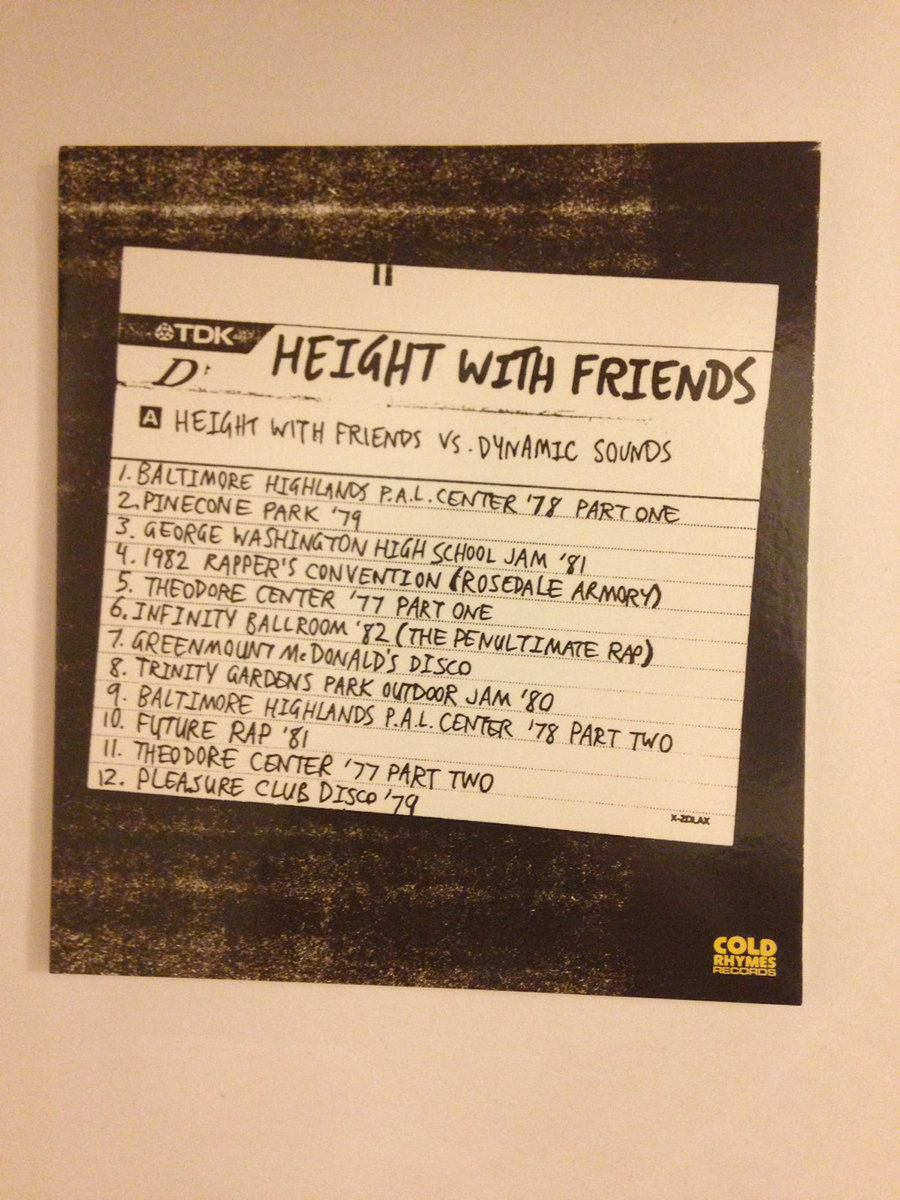 TDK
HEIGHT WITH FRIENDS
D
A HEIGHT WITH FRIENDS VS. DYNAMIC SOUNDS
1. BALTIMORE HIGHLANDS P.A.L. CENTER '78 PART ONE
2. PINECONE PARK '79
3. GEORGE WASHINGTON HIGH SCHOOL JAM '81
4. 1982 RAPPER'S CONVENTION (ROSEDALE ARMORY)
5. THEODORE CENTER '77 PART ONE
6. INFINITY BALLROOM '82 (THE PENULTIMATE RAP)
7. GREENMOUNT McDONALD'S DISCO
8. TRINITY GARDENS PARK OUTDOOR JAM '80
9. BALTIMORE HIGHLANDS P.A.L. CENTER '78 PART TWO
10. FUTURE RAP '81
11. THEODORE CENTER '77 PART TWO
12. PLEASURE CLUB DISCO '79
X-ZDLAX
COLD
RHYMES
RECORDS